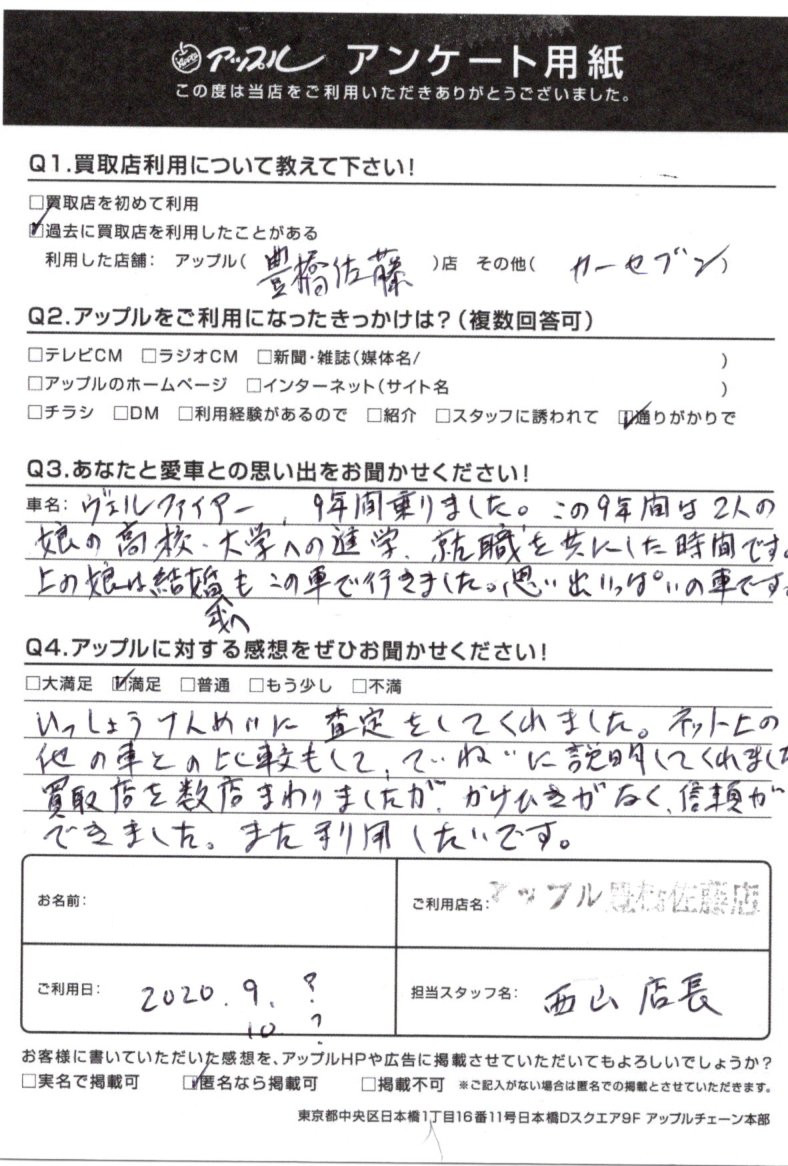 アップル アンケート用紙
この度は当店をご利用いただきありがとうございました。
Q1.買取店利用について教えて下さい!
□買取店を初めて利用
☑過去に買取店を利用したことがある
利用した店舗: アップル( 豊橋佐藤 )店 その他( カーセブン )
Q2.アップルをご利用になったきっかけは?(複数回答可)
□テレビCM □ラジオCM □新聞・雑誌(媒体名/ )
□アップルのホームページ □インターネット(サイト名 )
□チラシ □DM □利用経験があるので □紹介 □スタッフに誘われて ☑通りがかりで
Q3.あなたと愛車との思い出をお聞かせください!
車名: ヴェルファイヤー、9年間乗りました。この9年間は2人の
娘の高校・大学への進学、就職を共にした時間です。
上の娘は結婚式へもこの車で行きました。思い出いっぱいの車です。
Q4.アップルに対する感想をぜひお聞かせください!
□大満足 ☑満足 □普通 □もう少し □不満
いっしょうけんめいに査定をしてくれました。ネット上の
他の車との比較もして、ていねいに説明してくれました
買取店を数店まわりましたが、かけひきがなく、信頼が
できました。また利用したいです。
お名前:
ご利用店名: アップル豊橋佐藤店
ご利用日: 2020.9.?
10 ?
担当スタッフ名: 西山店長
お客様に書いていただいた感想を、アップルHPや広告に掲載させていただいてもよろしいでしょうか?
□実名で掲載可 ☑匿名なら掲載可 □掲載不可 ※ご記入がない場合は匿名での掲載とさせていただきます。
東京都中央区日本橋1丁目16番11号日本橋Dスクエア9F アップルチェーン本部